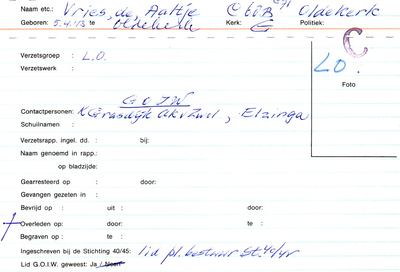 Naam etc.: Vries, de, Aaltje Oldekerk
Geboren: 5.4.13 te Kerk: G Politiek:
C
Verzetsgroep : L.O.
Verzetswerk :
LO.
Foto
GOIW
Contactpersonen: K Grasdijk , Elzinga
Schuilnaam :
Verzetsrapp. ingel. dd. : bij:
Naam genoemd in rapp.:
op bladzijde:
Gearresteerd op : door:
Gevangen gezeten in :
Bevrijd op : uit : door:
Overleden op: door: te :
Begraven op : te :
Ingeschreven bij de Stichting 40/45: lid pl. bestuur St. 40/45
Lid G.O.I.W. geweest: Ja / Neen